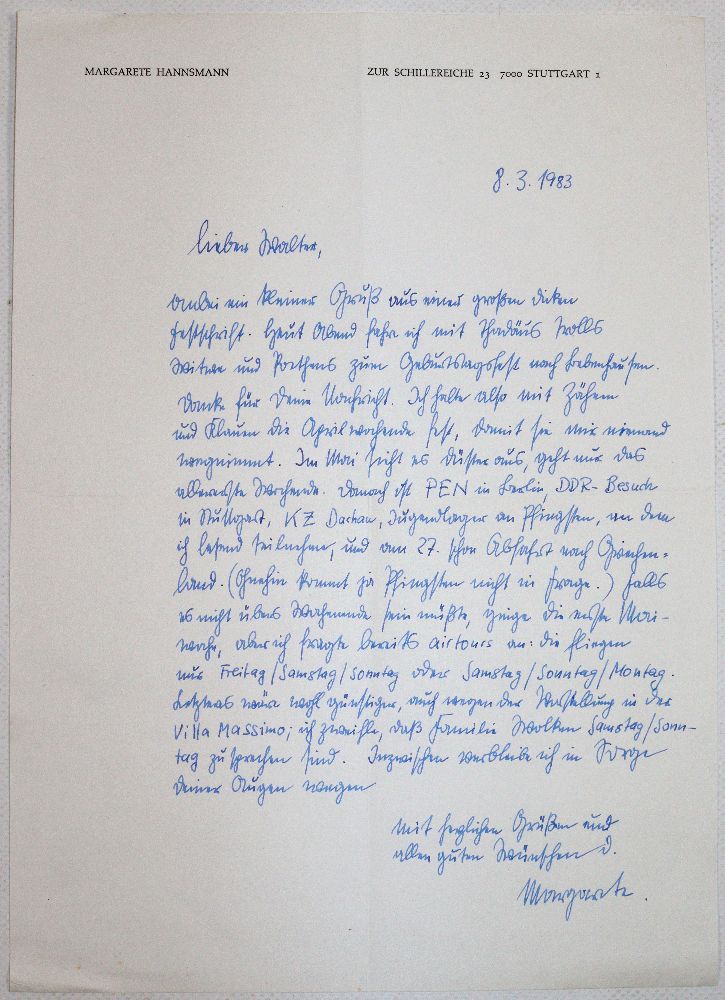 MARGARETE HANNSMANN
ZUR SCHILLEREICHE 23 7000 STUTTGART 1
8.3.1983
lieber Walter,
anbei ein kleiner Gruß aus einer großen dicken
Festschrift. Heut Abend fahre ich mit Thadäus Trolls
Witwe und Poethens zum Geburtstagsfest nach Bebenhausen.
Danke für Deine Nachricht. Ich halte also mit Zähnen
und Klauen die Aprilwochende fest, damit sie mir niemand
wegnimmt. Im Mai sieht es düster aus, geht nur das
allererste Wochende. Danach ist PEN in Berlin, DDR-Besuch
in Stuttgart, KZ Dachau, Jugendlager an Pfingsten, an dem
ich lesend teilnehme, und am 27. schon Abfahrt nach Griechen=
land. (Ohnehin kommt ja Pfingsten nicht in Frage.) Falls
es nicht übers Wochenende sein müßte, ginge die erste Mai-
woche, aber ich fragte bereits airtours an: die fliegen
nur Freitag/Samstag/Sonntag oder Samstag/Sonntag/Montag.
Letzteres wäre wohl günstiger, auch wegen der Vorstellung in der
Villa Massimo; ich zweifle, daß Familie Wolken Samstag/Sonn-
tag zu sprechen sind. Inzwischen verbleibe ich in Sorge
Deiner Augen wegen
mit herzlichen Grüßen und
allen guten Wünschen D.
Margarete.